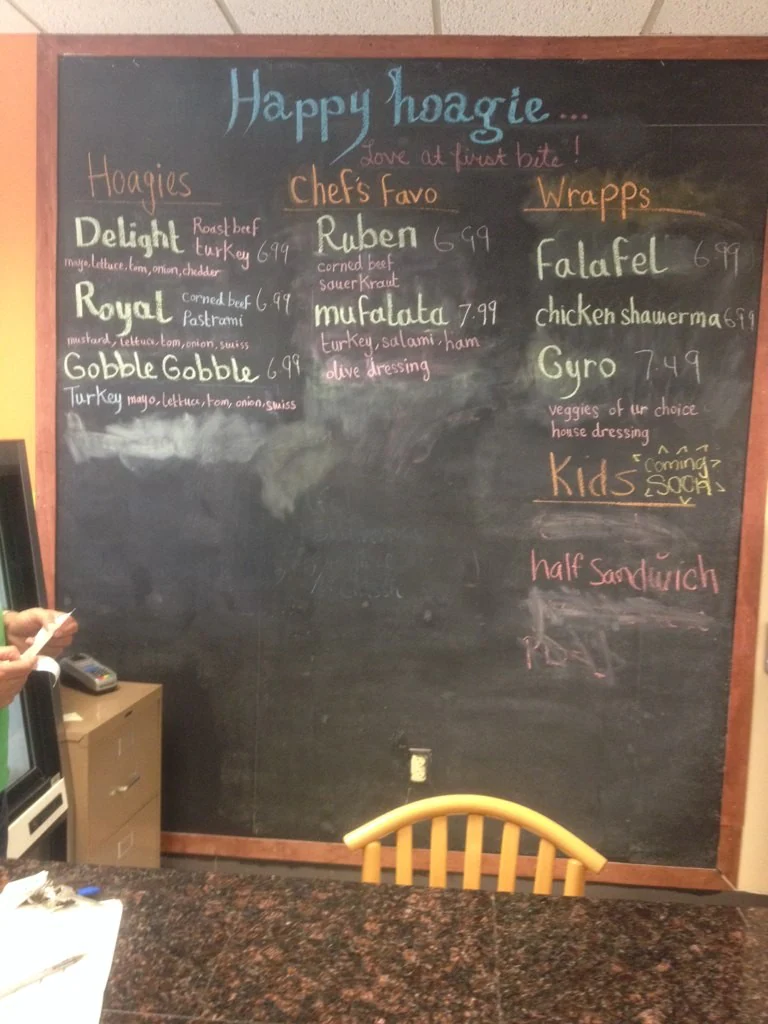 Happy hoagie...
Love at first bite!
Hoagies
Delight Roast beef
turkey 6.99
mayo, lettuce, tom, onion, chedder
Royal Corned beef 6.99
Pastrami
mustard, lettuce, tom, onion, swiss
Gobble Gobble 6.99
Turkey mayo, lettuce, tom, onion, swiss
Chef's Favo
Ruben 6.99
corned beef
sauerkraut
mufalata 7.99
turkey, salami, ham
olive dressing
Wrapps
Falafel 6.99
chicken shawerma 6.99
Gyro 7.49
veggies of ur choice
house dressing
Kids coming
soon
half sandwich